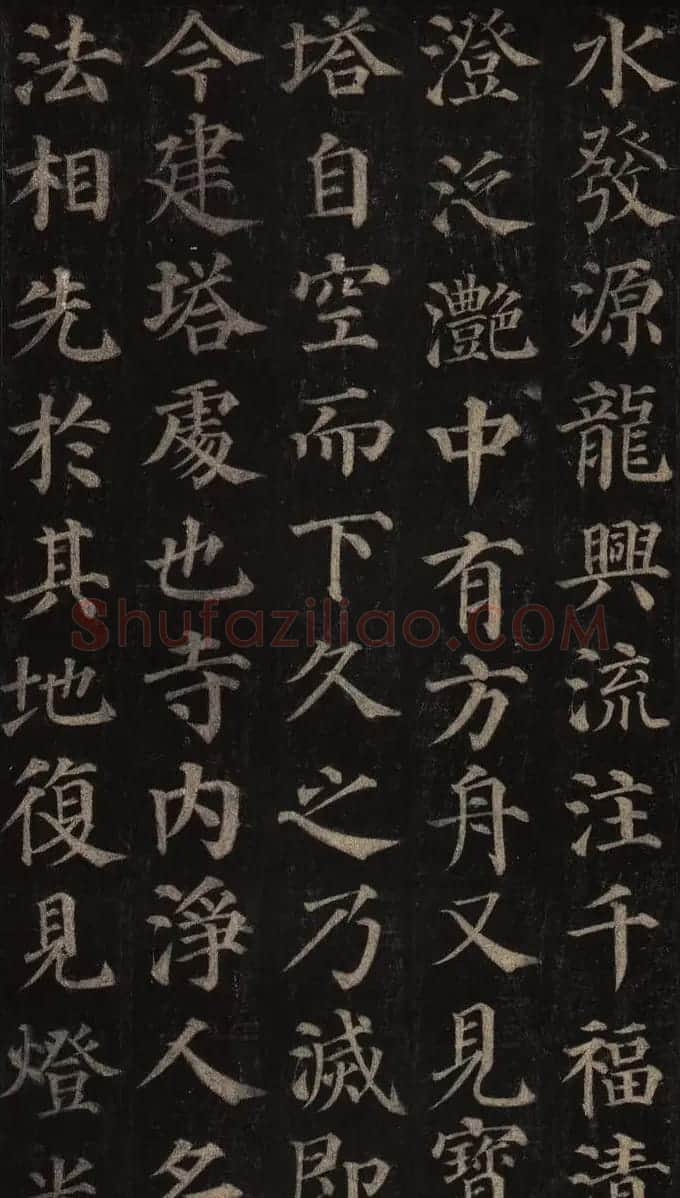 水發源龍興流注千福清
澄泛灩中有方舟又見寶
塔自空而下久之乃滅即
今建塔處也寺内淨人名
法相先於其地復見燈光
Shufaziliao.COM